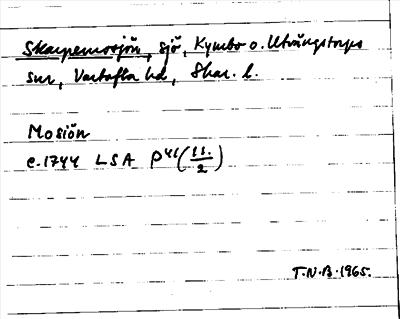 Skarpemosjön, sjö, Kymbo o. Utvängstorps
snr, Vartofta hd, Skar. l.
Mosiön
c. 1744 LSA P41 (11./2)
T.N.B. 1965.